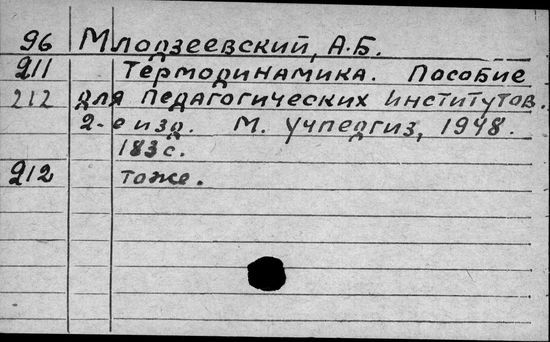 96 Млодзеевский, А.Б.
211 Термодинамика. Пособие
212 для педагогических институтов.
2-е изд. М. Учпедгиз, 1948.
183 с.
212 тоже.